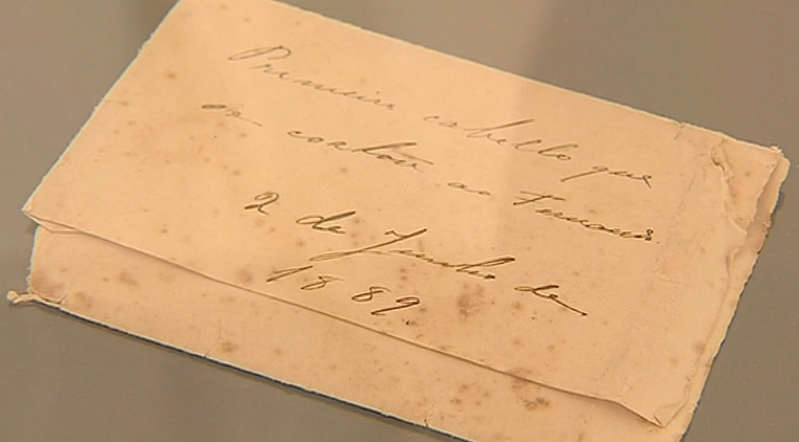 Primeiro cabello que
se cortou ao Fernando.
2 de Junho de
1889.